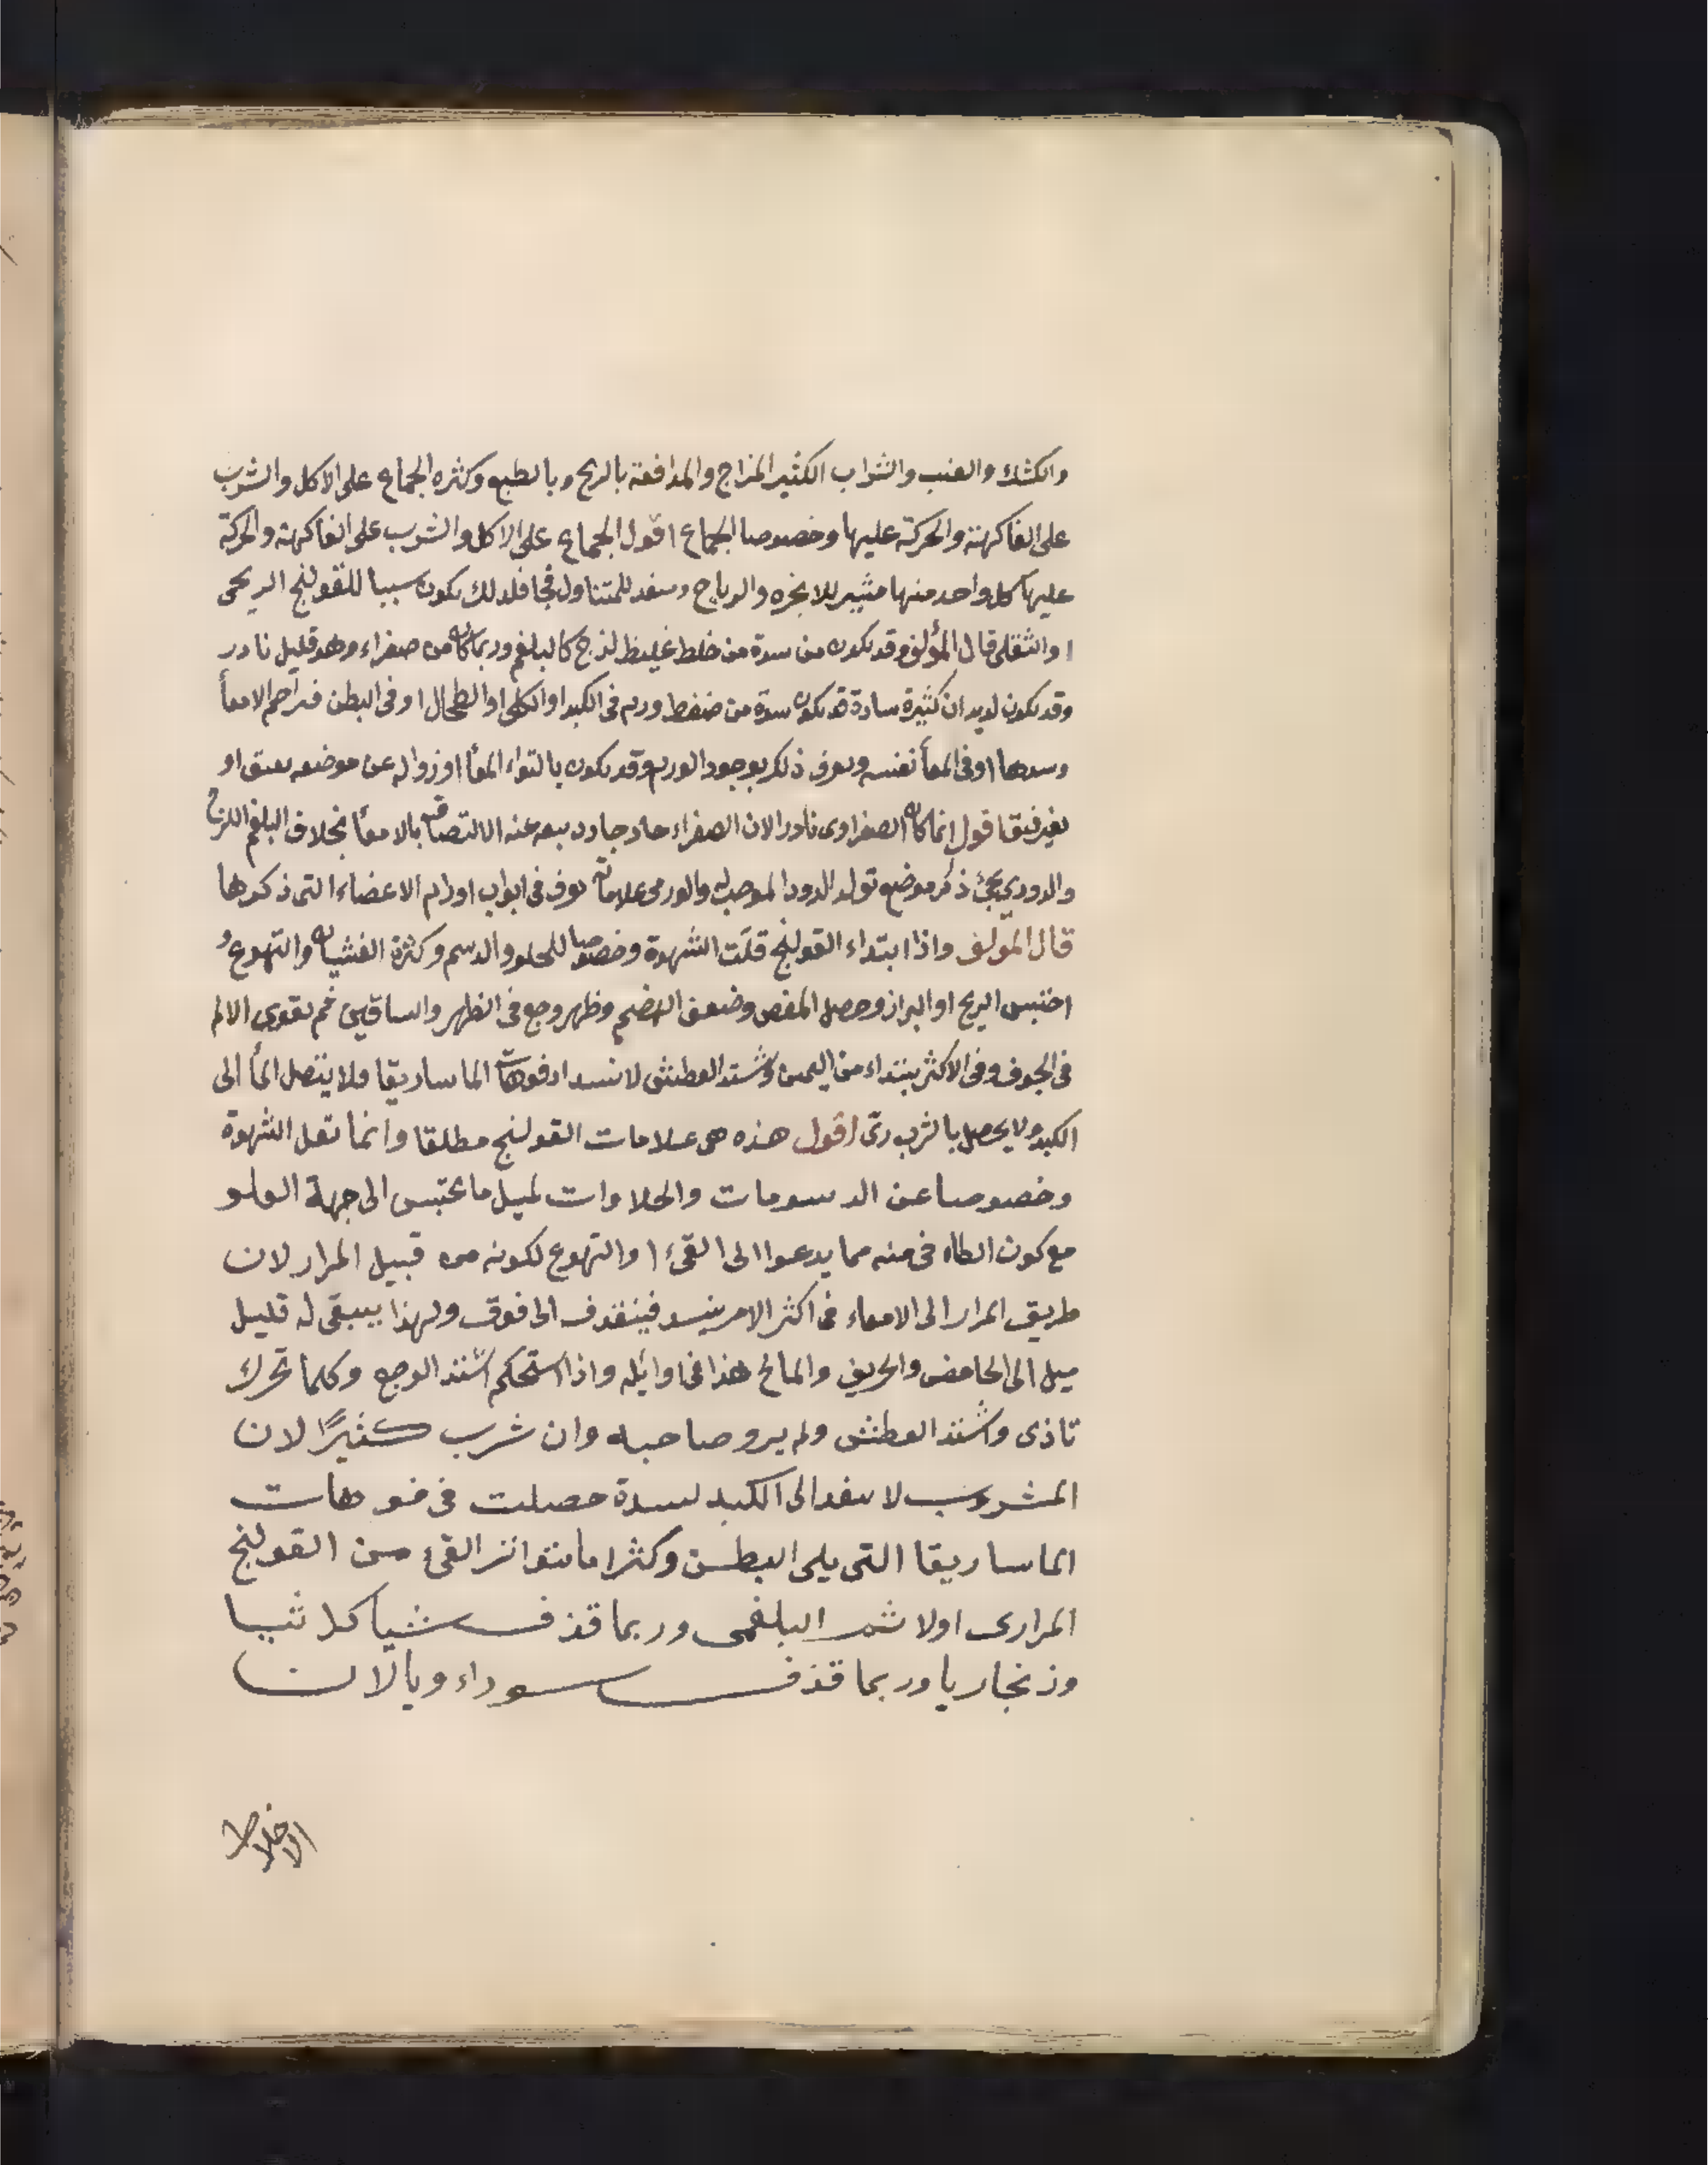 والكشك والعنب والشراب الكثير المزاج والمدافعة بالريح وبالطبع وكثره الجماع على الاكل والشرب
على الفاكهة والحركة عليها وخصوصا الجماع اقول الجماع على الاكل والشرب على الفاكهة والحركة
عليها كل واحد منها مثير للابخره والرياح ومنفد للمتناول فجا فلدلك يكون سببا للقولنج الريحى
والثقلى قال المؤلف وقد يكون من سدة من خلط غليظ لزج كالبلغم وربما كان من صفراء وهو قليل نادر
وقد يكون لديدان كثيرة سادة قد يكون سدة من ضغط ورم فى الكبد او الكلى او الطحال او فى البطن فتراحم الامعأ
وسدها او فى المعأ نفسه ويعرف ذلك بوجود الورم وقد يكون بالتواء المعأ او زواله عن موضعه بفتق او
بغير فتق اقول انما كان الصفراوى نادرا لان الصفراء حاد جارد يبعد عنه الالتصاق بالامعأ بخلاف البلغم اللزج
والدودى يجئ ذكر موضع تولد الدود الموجب له والورمى علاماته تعرف فى ابواب اورام الاعضاء التى ذكرها
قال المولف واذا ابتداء القولنج قلت الشهوة وخصوصا للحلو والدسم وكثرة الغشيان والتهوع و
احتبس الريح او البراز وحصل المغص وضعف الهضم وظهر وجع فى الظهر والساقين ثم يقوى الالم
فى الجوف وفى الاكثر يبتداء من اليمين ويشتد العطش لانسداد فوهات الماساريقا فلا يتصل المأ الى
الكبد ولا يحصل بالشرب رى اقول هذه هى علامات القولنج مطلقا وانما تقل الشهوة
وخصوصا عن الدسومات والحلاوات لميل ما يحتبس الى جهة العلو
مع كون الطاه فى منه مما يدعوا الى القىء والتهوع لكونه من قبيل المرار لان
طريق المرار الى الامعاء فى اكثر الامر ينسد فينقذف الى فوق ولهذا يبقى له قليل
ميل الى الحامض والحريف والمالح هذا فى اوايله واذا استحكم اشتد الوجع وكلما تحرك
تاذى واشتد العطش ولم يرو صاحبه وان شرب كثيرًا لان
المشروب لا ينفد الى الكبد لسدة حصلت فى فوهات
الماساريقا التى يلى البطن وكثرا ما يتواتر القئ من القولنج
المرارى اولا ثم البلغمى وربما قذف شيا كراثيا
وزنجاريا وربما قذف سوداء وبالان
الاخلاط